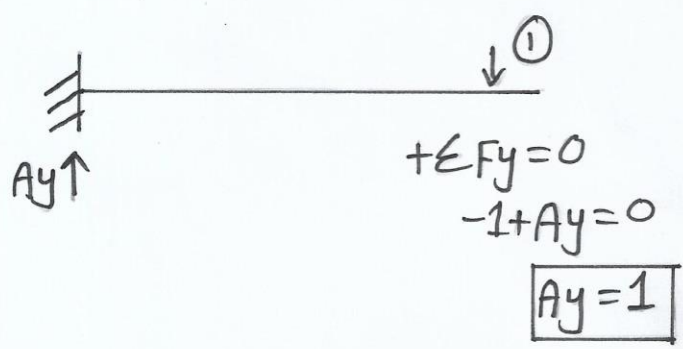 ①
Ay↑
+ΣFy=0
-1+Ay=0
Ay=1